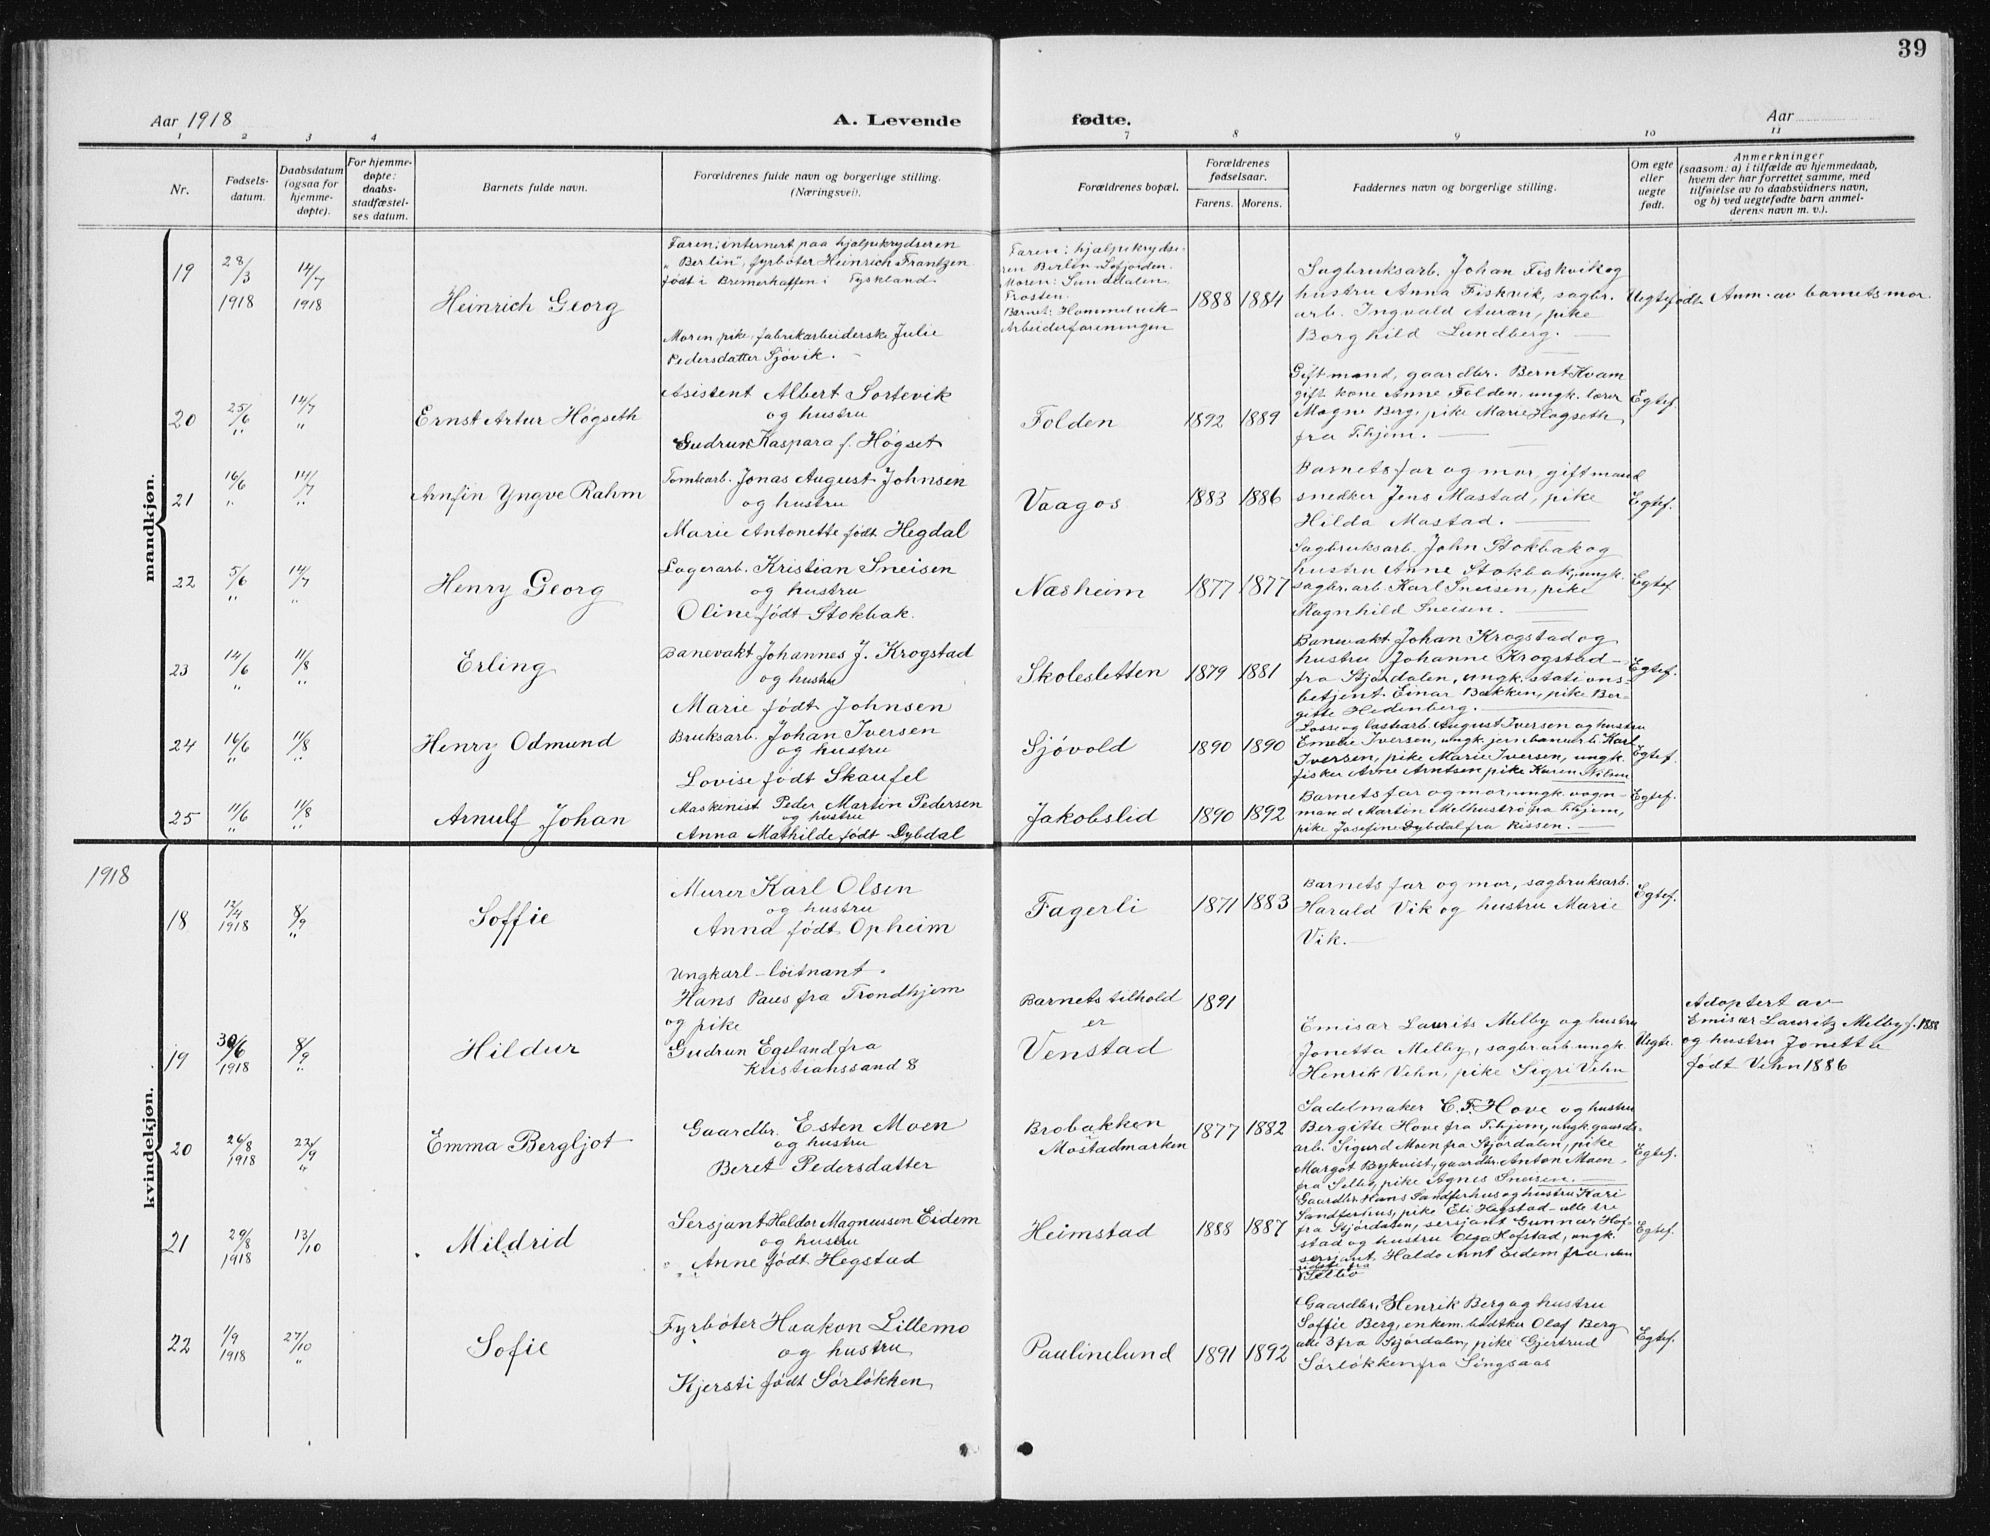 39
Aar 1918
A. Levende fødte.
Aar
1 2 3 4 7 8 9 10 11
Nr.
Fødsels-
datum.
Daabsdatum
(ogsaa for
hjemme-
døpte).
For hjemme-
døpte:
daabs-
stadfæstel-
ses datum.
Barnets fulde navn.
Forældrenes fulde navn og borgerlige stilling.
(Næringsvei).
Forældrenes bopæl.
Forældrenes
fødselsaar.
Farens. Morens.
Faddernes navn og borgerlige stilling.
Om egte
eller
uegte
født.
Anmerkninger
(saasom: a) i tilfælde av hjemmedaab,
hvem der har forrettet samme, med
tilføielse av to daabsvidners navn,
og b) ved uegtefødte barn anmel-
derens navn m. v.).
mandkjøn.
19
28/3
1918
14/7
1918
Heinrich Georg
Faren: internert paa hjælpekrydseren
"Berlin", fyrbøter Heinrich Frantzen
født i Bremerhaffen i Tyskland.
Moren, pike, fabrikarbeiderske Julie
Pedersdatter Sjøvik.
Faren: hjælpekrydse-
ren Berlin - Lofjorden.
Moren: Sunddalen
Frosten.
Barnet: Hommelvik-
Arbeiderforeningen
1888 1884
Sagbruksarb. Johan Fiskvik og
hustru Anna Fiskvik, sagbr.
arb. Ingvald Auran, pike
Borghild Lundberg.
Uegtefødt
Anm. av barnets mor.
20
25/6
"
14/7
"
Ernst Artur Høgseth
Asistent Albert Sortevik
og hustru
Gudrun Kaspara f. Høgset
Folden
1892 1889
Gift mand, gaardbr. Bernt Kvam
gift kone Anne Folden, ungk. lærer
Magne Berg, pike Marie Høgseth
fra Thjem.
Egtef.
21
16/6
"
14/7
"
Arnfin Yngve Rahm
Tomtearb. Jonas August Johnsen
og hustru
Marie Antonette født Hegdal
Vaagos
1883 1886
Barnets far og mor, gift mand
snedker Jens Mastad, pike
Hilda Mastad.
Egtef.
22
5/6
"
14/7
"
Henry Georg
Lagerarb. Kristian Sneisen
og hustru
Oline født Stokbak.
Næsheim
1877 1877
Sagbruksarb. John Stokbak og
hustru Anne Stokbak, ungk.
sagbr. arb. Karl Sneisen, pike
Magnhild Sneisen.
Egtef.
23
14/6
"
11/8
"
Erling
Banevakt Johannes J. Krogstad
og hustru
Marie født Johnsen
Skolesletten
1879 1881
Banevakt Johan Krogstad og
hustru Johanne Krogstad
fra Stjørdalen, ungk. stations-
betjent Einar Bakken, pike Ber-
gitte Hedenberg.
Egtef.
24
16/6
"
11/8
"
Henry Odmund
Bruksarb. Johan Iversen
og hustru
Lovise født Skaufel
Sjøvold
1890 1890
Losse og lastearb. August Iversen og hustru
Emelie Iversen, ungk. jernbanearb. Karl
Iversen, pike Marie Iversen, ungk.
fisker Arne Arntsen pike Karen Nilsen
Egtef.
25
11/6
"
11/8
"
Arnulf Johan
Maskinist Peder Martin Pedersen
og hustru
Anna Mathilde født Dybdal
Jakobslid
1890 1892
Barnets far og mor, ungk. vogn-
mand Martin Melhustrø fra Thjem,
pike Josefine Dybdal fra Rissen.
Egtef.
1918
kvindekjøn.
18
12/4
1918
8/9
"
Soffie
Murer Karl Olsen
og hustru
Anna født Opheim
Fagerli
1871 1883
Barnets far og mor, sagbruksarb.
Harald Vik og hustru Marie
Vik.
Egtef.
19
30/6
1918
8/9
"
Hildur
Ungkarl - løitnant
Hans Paus fra Trondhjem
og pike
Gudrun Egeland fra
Kristianssand S
Barnets tilhold
er
Venstad
1891
Emisær Laurits Melby og hustru
Jonetta Melby, sagbr. arb. ungk.
Henrik Vehn, pike Sigri Vehn
Uegte.
Adoptert av
Emisær Lauritz Melby f. 1888
og hustru Jonetta
født Vehn 1886
20
26/8
1918
22/9
"
Emma Bergljot
Gaardbr. Esten Moen
og hustru
Beret Pedersdatter
Brobakken
Mostadmarken
1877 1882
Sadelmaker C. F. Hove og hustru
Bergitte Hove fra Thjem, ungk. gaards-
arb. Sigurd Moen fra Stjørdalen, pike
Margot Bykvist, gaardbr. Anton Moen
fra Selbu, pike Agnes Sneisen.
Egtef.
21
29/8
1918
13/10
Mildrid
Sersjant Haldor Magnussen Eidem
og hustru
Anne født Hegstad
Heimstad
1888 1887
Gaardbr. Hans Sandferhus og hustru Kari
Sandferhus, pike Eli Hegstad - alle tre
fra Stjørdalen, sersjant Gunnar Hof-
stad og hustru Olga Hofstad, ungk.
sersjant Haldo Arnt Eidem fra, den
sidste fra
Selbo
Egtef.
22
1/9
1918
27/10
"
Sofie
Fyrbøter Haakon Lillemo
og hustru
Kjersti født Sørløkken
Paulinelund
1891 1892
Gaardbr. Henrik Berg og hustru
Soffie Berg, enkem. bødtker Olaf Berg
alle 3 fra Stjørdalen, pike Gjertrud
Sørløkken fra Singsaas
Egtef.